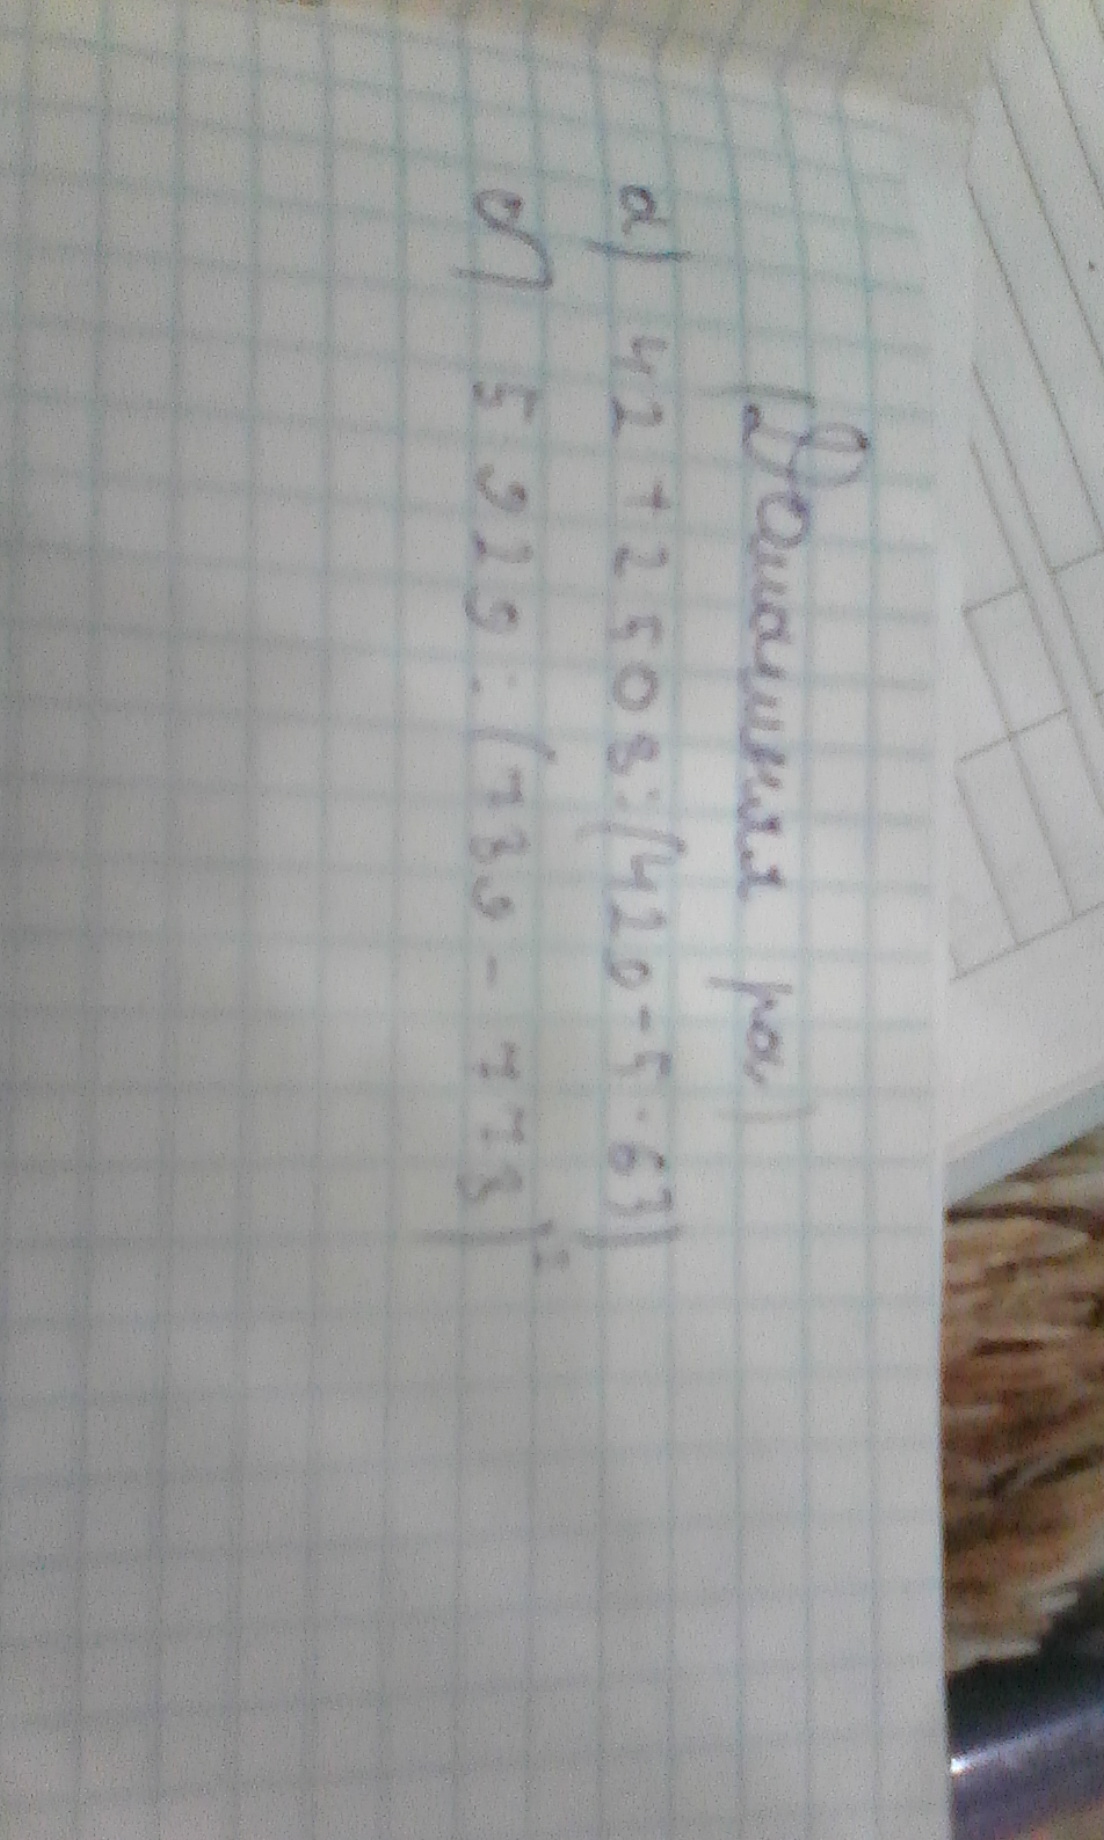 (Домашняя ра.)
а) 42 + 2508 : (429 - 5 · 63)
б) 5929 : (789 - 778)²